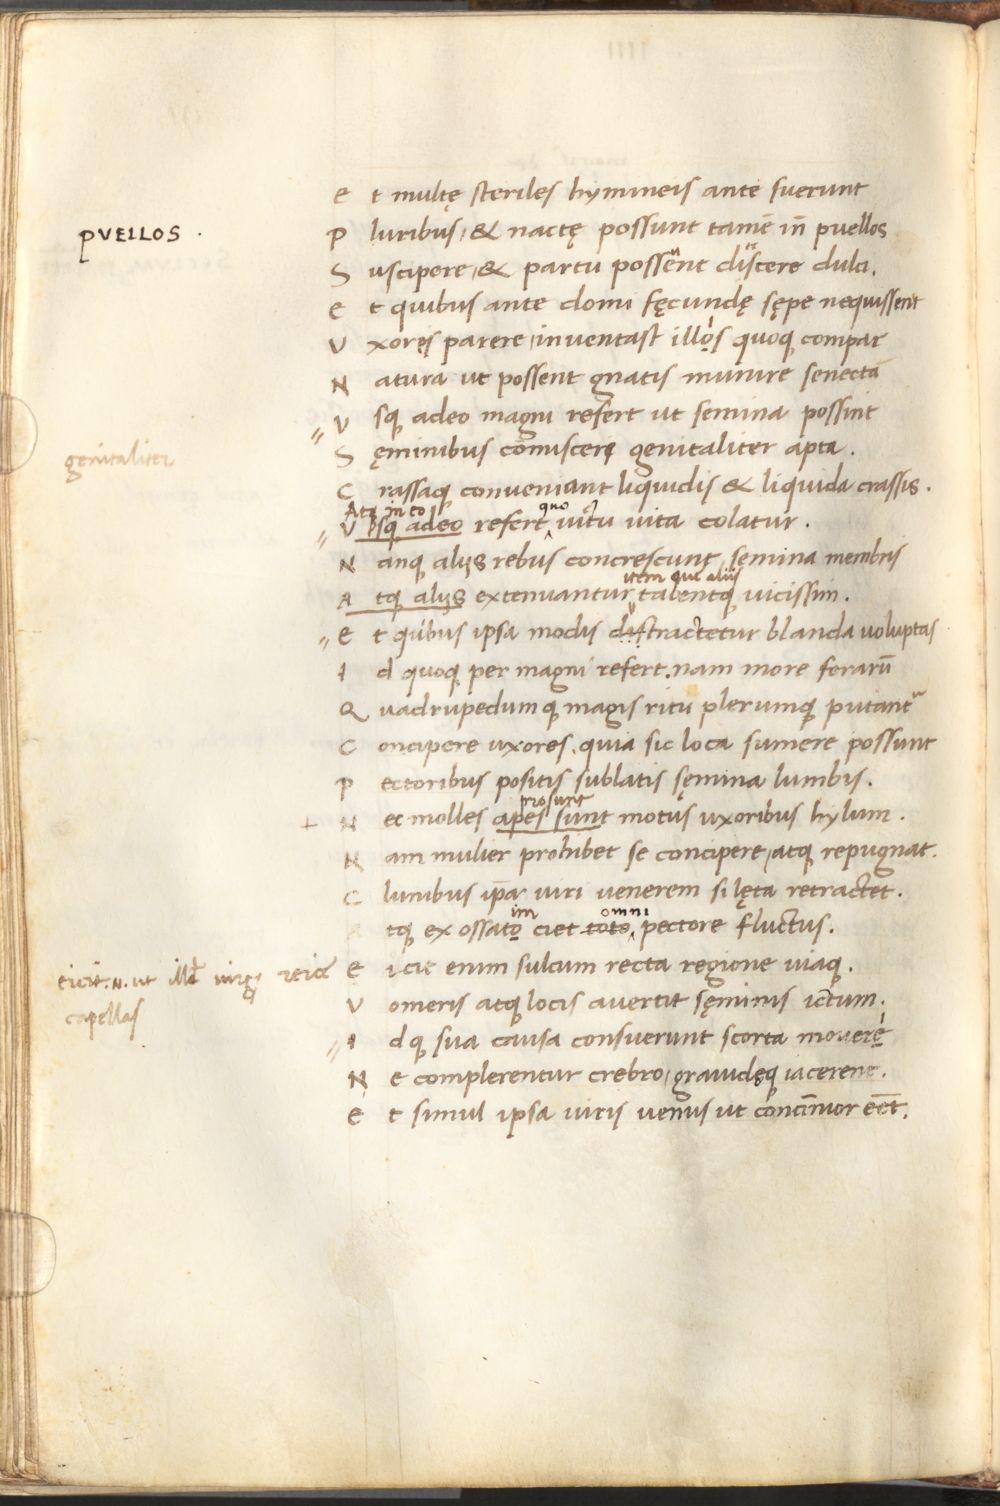 PVELLOS .
genitaliter
eicit .N. ut illd virg reice
capellas
E t multę steriles hymineis ante fuerunt
P luribus, & nactę possunt tamē in̄ puellos
S uscipere, & partu possent discere dulci.
E t quibus ante domi fęcundę sępe nequissent
V xores parere, inventast illos quoq compar
N atura ut possent gnatis munire senectā
V sq adeo magni refert ut semina possint
S ęminibus comiscere genitaliter apta .
C rassaq conveniant liquidis & liquida crassis .
Atq in eo quo
V sq adeo refert victu vita colatur .
N anq alijs rebus concrescunt sęmina membris
item que aliis
A tq alijs extenuantur talentq vicissim .
E t quibus ipsa modis distractetur blanda voluptas
I d quoq per magni refert. nam more ferarū
Q uadrupedumq magis ritu plerumq putant
C oncipere uxores, quia sic loca sumere possunt
P ectoribus positis sublatis sęmina lumbis .
prosunt
N ec molles apes sunt motus uxoribus hylum .
N am mulier prohibet se concipere, atq repugnat.
C lunibus ip̄a viri venerem si lęta retractet .
im omni
A tq ex ossato ciet toto pectore fluctus.
E icit enim sulcum recta regione viaq .
V omeris atq locis avertit sęminis ictum .
I dq sua causa consuerunt scorta movere
N e complerentur crebro, gravidęq iacerent .
E t simul ipsa viris venus ut concīnior eēt.